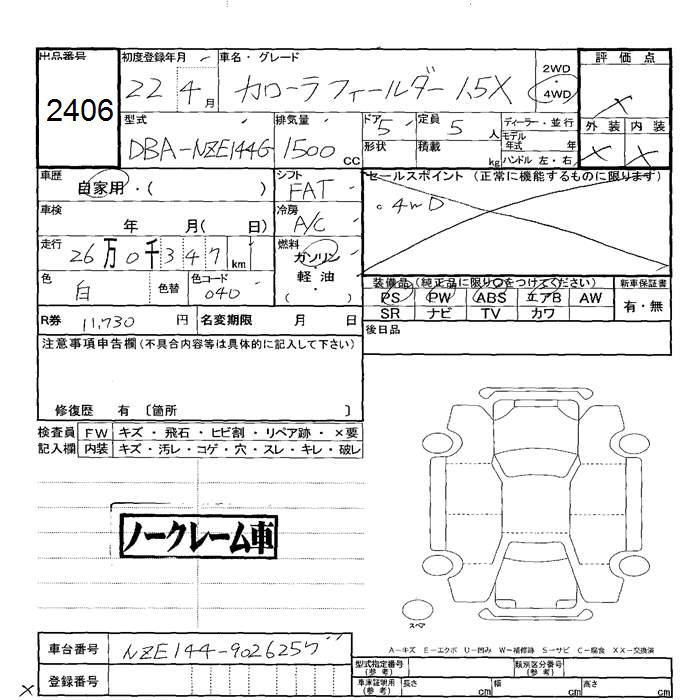 出品番号
2406
初度登録年月
22 4 月
車名・グレード
カローラフィールダー 1.5X
2WD
・
4WD
評価点
×
外装 内装
× ×
型式
DBA-NZE144G
排気量
1500 CC
ドア 5
形状
定員 5 人
積載 kg
ディーラー・並行
モデル
年式 年
ハンドル 左・右
車歴
自家用・( )
シフト
FAT
セールスポイント (正常に機能するものに限ります)
。4WD
車検
年 月( 日)
冷房
A/C
走行
26万0千347 km
燃料
ガソリン
軽・油
( )
色
白
色替
色コード
040
装備品(純正品に限り○をつけてください)
PS PW ABS エアB AW
SR ナビ TV カワ
新車保証書
有・無
R券 11,730 円
名変期限 月 日
後日品
注意事項申告欄(不具合内容等は具体的に記入して下さい)
修復歴 有 〔箇所 〕
検査員 FW キズ・飛石・ヒビ割・リペア跡・×要
記入欄 内装 キズ・汚レ・コゲ・穴・スレ・キレ・破レ
ノークレーム車
スペア
A-キズ E-エクボ U-凹み W-補修跡 S-サビ C-腐食 XX-交換済
車台番号 NZE144-9026257
登録番号
型式指定番号
(参考)
類別区分番号
(参考)
車庫証明用
(参考)
長さ cm 幅 cm 高さ cm
×